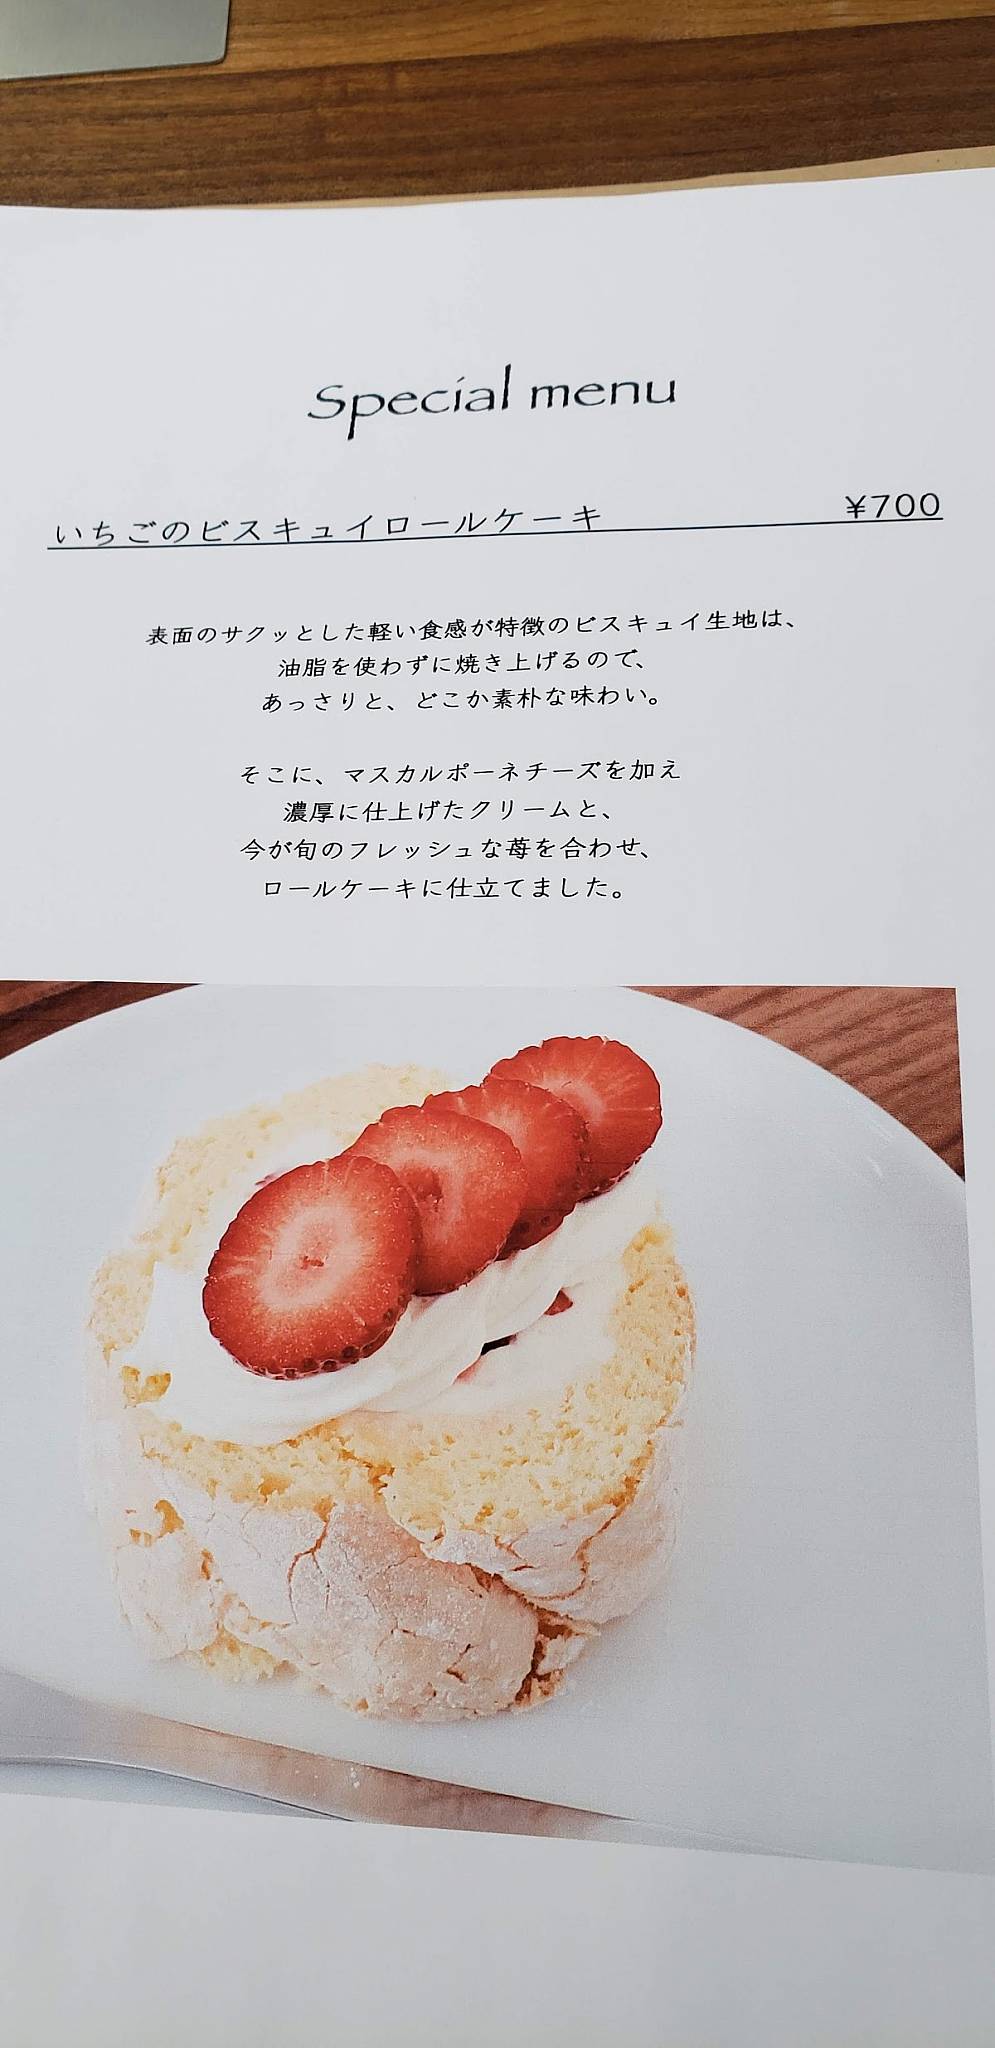 Special menu
いちごのビスキュイロールケーキ ¥700
表面のサクッとした軽い食感が特徴のビスキュイ生地は、
油脂を使わずに焼き上げるので、
あっさりと、どこか素朴な味わい。
そこに、マスカルポーネチーズを加え
濃厚に仕上げたクリームと、
今が旬のフレッシュな苺を合わせ、
ロールケーキに仕立てました。